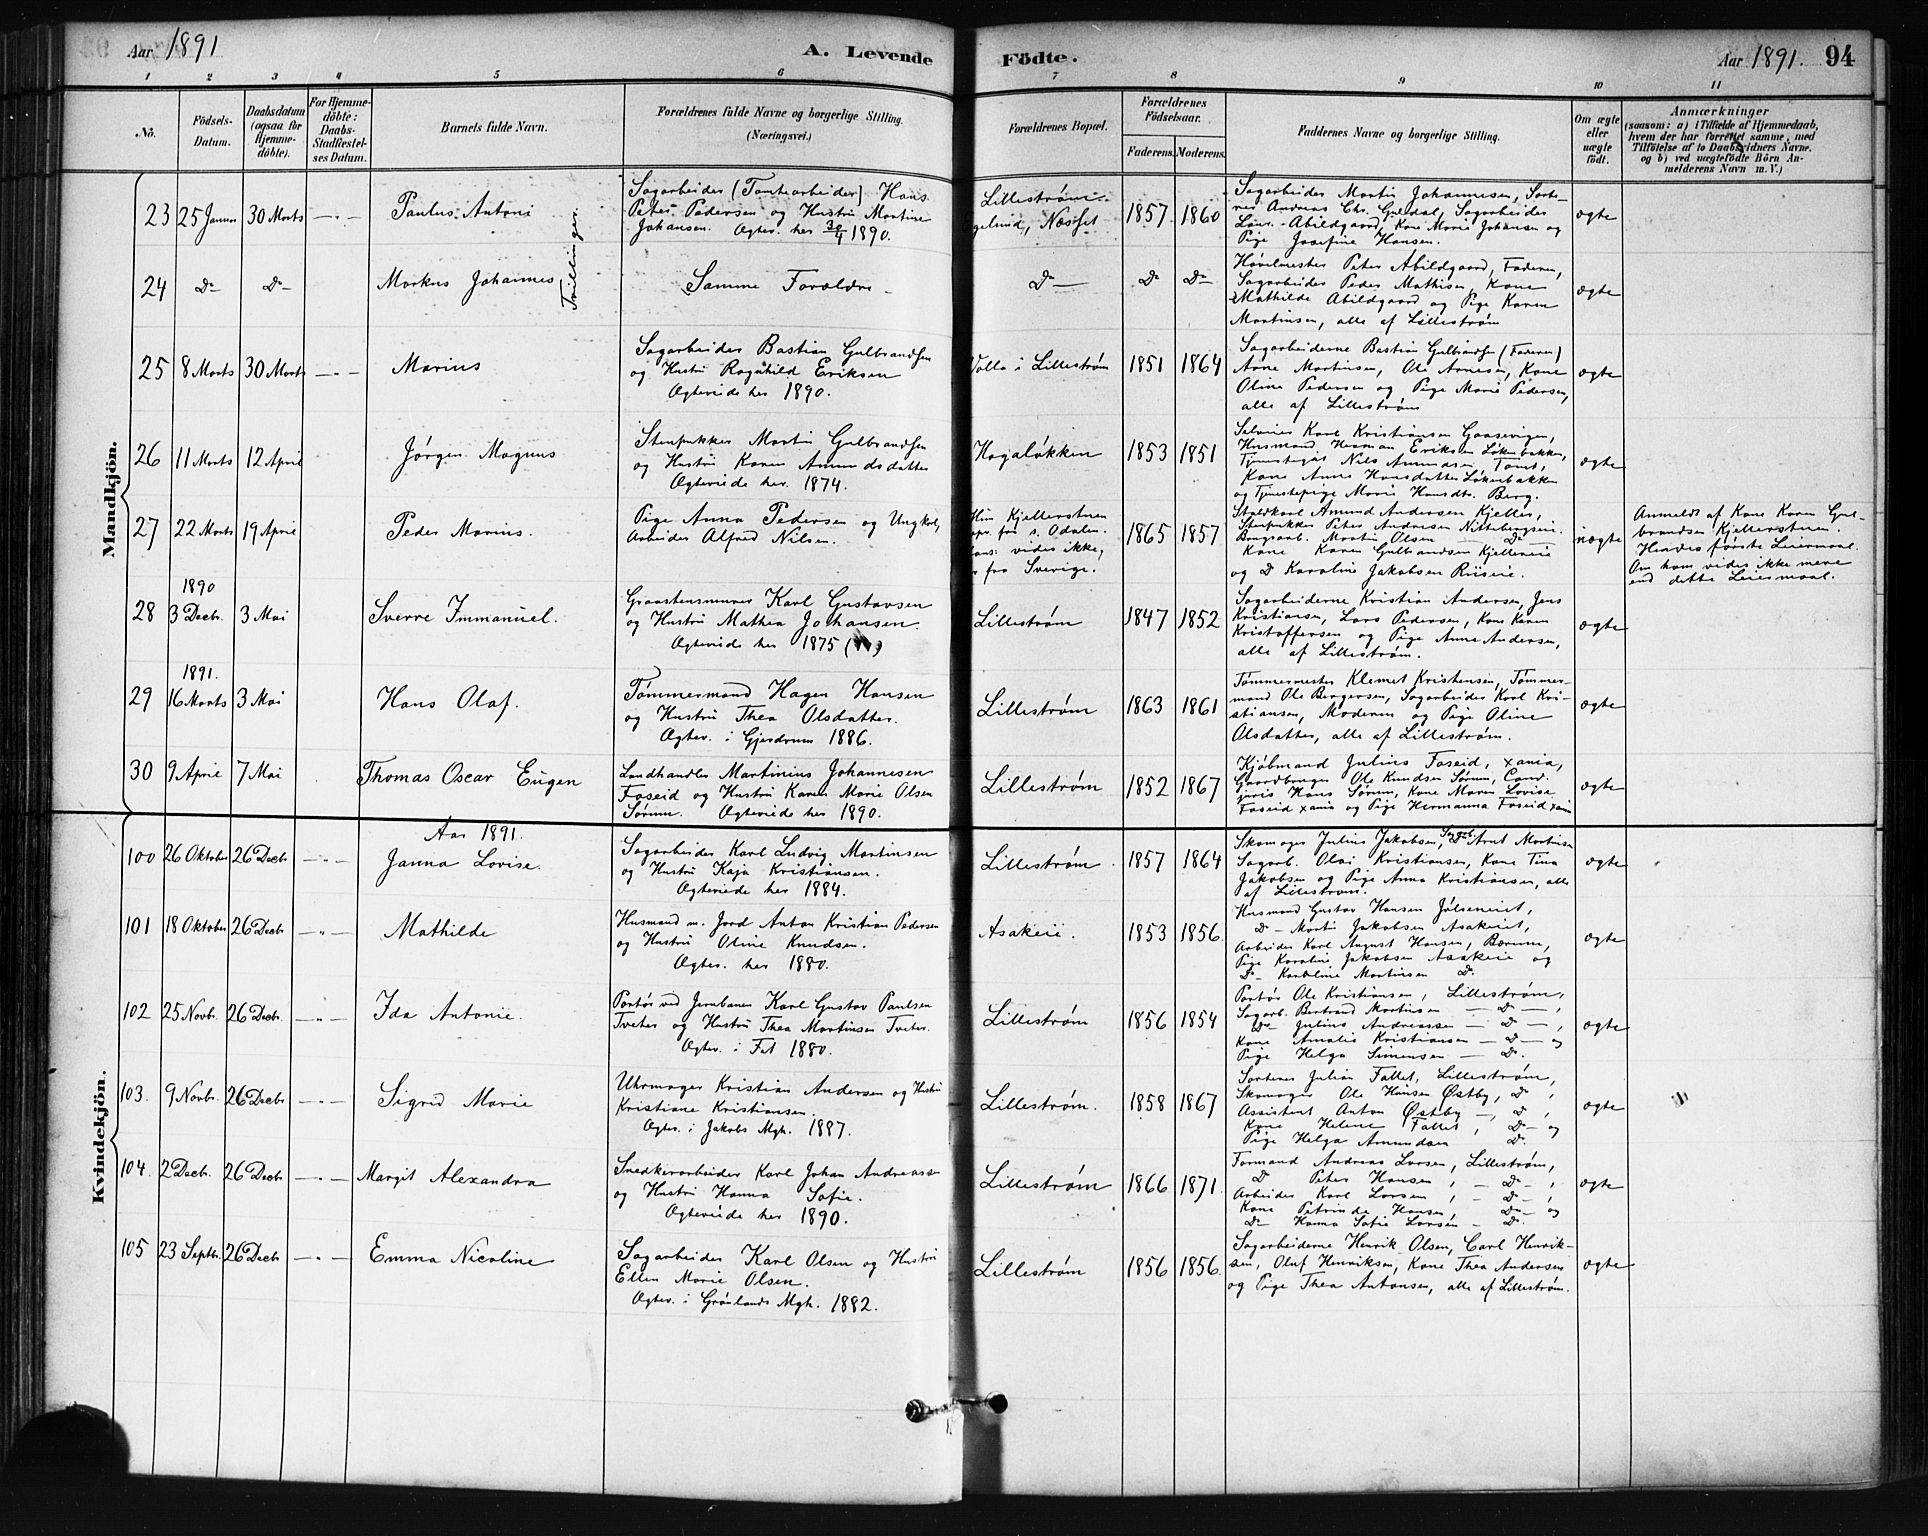 Aar 1891
A. Levende Födte.
Aar 1891. 94
1 2 3 4 5 6 7 8 9 10 11
No.
Födsels-Datum.
Daabsdatum (ogsaa for Hjemme-döbte).
For Hjemme-döbte: Daabs-Stadfæstel-ses Datum.
Barnets fulde Navn.
Forældrenes fulde Navne og borgerlige Stilling.
(Næringsvei.)
Forældrenes Bopæl.
Forældrenes Födselsaar.
Faderens. Moderens.
Faddernes Navne og borgerlige Stilling.
Om ægte eller uægte födt.
Anmærkninger
(saasom: a) i Tilfælde af Hjemmedaab,
hvem der har forrettet samme, med
Tilföielse af to Daabsvidners Navne.
og b) ved uægtefödte Börn An-
melderens Navn m. V.)
Mandkjön.
23 25 Januar 30 Marts —"— Paulus Antoni
Tvillinger.
Sagarbeider (Tomtearbeider) Hans
Peter Pedersen og Hustru Martine
Johansen. Ægtev. her 30/4 1890.
Lillestrøm
1857 1860
Sagarbeider Martin Johannesen, Sorte-
rer Andreas Chr. Guldal, Sagarbeider
Laur. Abildgaard, Kone Marie Johansen og
Pige Josefine Hansen.
ægte
24 Do Do Markus Johannes
Samme Forældre
Do — Do Do
Høvelmester Peter Abildgaard, Faderen,
Sagarbeider Peder Mathisen, Kone
Mathilde Abildgaard og Pige Karen
Martinsen, alle af Lillestrøm
ægte
25 8 Marts 30 Marts —"— Marius
Sagarbeider Bastian Gulbrandsen
og Hustru Ragnhild Eriksen
Ægteviede her 1890.
Volla i Lillestrøm 1851 1864
Sagarbeiderne Bastian Gulbrandsen (Faderen)
Arne Martinsen, Ole Arnesen, Kone
Oline Pedersen og Pige Marie Pedersen,
alle af Lillestrøm
ægte
26 11 Marts 12 April Jørgen Magnus
Stenpukker Martin Gulbrandsen
og Hustru Karen Amundsdatter
Ægteviede her 1874.
Hagaløkken 1853 1851
Selveier Karl Kristiansen Gaasevigen,
Husmand Herman Eriksen Løkenbakken,
Tjenestegut Nils Amundsen Tomt,
Kone Anne Hansdatter Løkenbakken
og Tjenestepige Marie Hansdtr. Berg.
ægte
27 22 Marts 19 April Peder Marius.
Pige Anna Pedersen og Ungkarl,
Arbeider Alfred Nilsen.
Hun Kjellerstuen
fra s. Odalen.
vides ikke,
fra Sverige.
1865 1857
Staldkarl Amund Andersen Kjeller,
Stenpukker Peter Andersen Nittebergseie.
Brugsarb. Martin Olsen — Do —
Kone Karen Gulbrandsen Kjellereie
og Do Karoline Jakobsen Riiseie.
uægte
Anmeldt af Kone Karen Gul-
brandsen Kjellerstuen.
Hendes første Leiermaal.
Om ham vides ikke mere
end dette Leiermaal.
1890
28 3 Decbr. 3 Mai Sverre Immanuel.
Graastensmurer Karl Gustavsen
og Hustru Mathea Johansen
Ægteviede her 1875
Lillestrøm 1847 1852
Sagarbeiderne Kristian Andersen, Jens
Kristiansen, Lars Pedersen, Kone Karen
Kristoffersen og Pige Anne Andersen,
alle af Lillestrøm.
ægte
1891.
29 16 Marts 3 Mai Hans Olaf.
Tømmermand Hagen Hansen
og Hustru Thea Olsdatter.
Ægtev. i Gjerdrum 1886.
Lillestrøm 1863 1861
Tømmermester Klemet Kristensen, Tømmer-
mand Ole Bergersen, Sagarbeider Karl Kri-
stiansen, Moderen og Pige Oline
Olsdatter, alle af Lillestrøm.
ægte
30 9 April 7 Mai Thomas Oscar Eugen
Landhandler Martinius Johannesen
Foseid og Hustru Karen Marie Olsen
Sørum. Ægteviede her 1890.
Lillestrøm 1852 1867
Kjøbmand Julius Foseid, Xania,
Gaardbruger Ole Knudsen Sørum, Cand.
juris Hans Sørum, Kone Maren Lovise
Foseid Xania og Pige Hermanna Foseid Xania
ægte
Kvindekjön.
Aar 1891.
100 26 Oktober 26 Decbr —"— Janna Lovise.
Sagarbeider Karl Ludvig Martinsen
og Hustru Kaja Kristiansen.
Ægteviede her 1884.
Lillestrøm 1857 1864
Skomager Julius Jakobsen, Sagarb. Arnt Martinsen
Sagarb. Olai Kristiansen, Kone Tina
Jakobsen og Pige Anna Kristiansen, alle
af Lillestrøm.
ægte
101 18 Oktober 26 Decbr —"— Mathilde
Husmand m. Jord Anton Kristian Pedersen
og Hustru Oline Knudsen.
Ægtev. her 1880.
Asakeie. 1853 1856
Husmand Gustav Hansen Jølseneiet,
Do — Martin Jakobsen Asakeiet,
Arbeider Karl August Hansen, Bærum,
Pige Karoline Jakobsen Asakeie og
Do — Karoline Martinsen Do.
ægte
102 25 Novbr. 26 Decbr. —"— Ida Antonie.
Portør ved Jernbanen Karl Gustav Paulsen
Tveter og Hustru Thea Martinsen Tveter.
Ægtev. i Fet 1880.
Lillestrøm 1856 1854
Portør Ole Kristiansen, Lillestrøm,
Sagarb. Bertrand Martinsen — Do —,
Do Julius Andreassen — Do —,
Kone Amalie Kristiansen — Do — og
Pige Helga Simensen — Do.
ægte
103. 9 Novbr. 26 Decbr —"— Sigrid Marie
Uhrmager Kristian Andersen og Hustru
Kristiane Kristiansen.
Ægtev. i Jakobs Mgh. 1887.
Lillestrøm. 1858 1867
Sorterer Julian Fallet, Lillestrøm,
Skomager Ole Hansen Østby, Do,
Assistent Anton Østby —, Do,
Kone Helene Fallet, Do — og
Pige Helga Amundsen Do.
ægte
104. 2 Decbr. 26 Decbr. —"— Margit Alexandra
Snedkerarbeider Karl Johan Andreassen
og Hustru Hanna Sofie.
Ægteviede her 1890.
Lillestrøm 1866 1871
Formand Andreas Larsen, Lillestrøm,
Do Peter Hansen, — Do —,
Arbeider Karl Larsen, — Do —,
Kone Petrinde Hansen, Do — og
Do — Hanna Sofie Larsen — Do.
ægte
105 23 Septbr. 26 Decbr —"— Emma Nicoline
Sagarbeider Karl Olsen og Hustru
Ellen Marie Olsen.
Ægtev. i Grønlands Mgh. 1882.
Lillestrøm 1856 1856
Sagarbeiderne Henrik Olsen, Carl Henrik-
sen, Oluf Henriksen, Kone Thea Andersen
og Pige Thea Antonsen, alle af Lillestrøm.
ægte